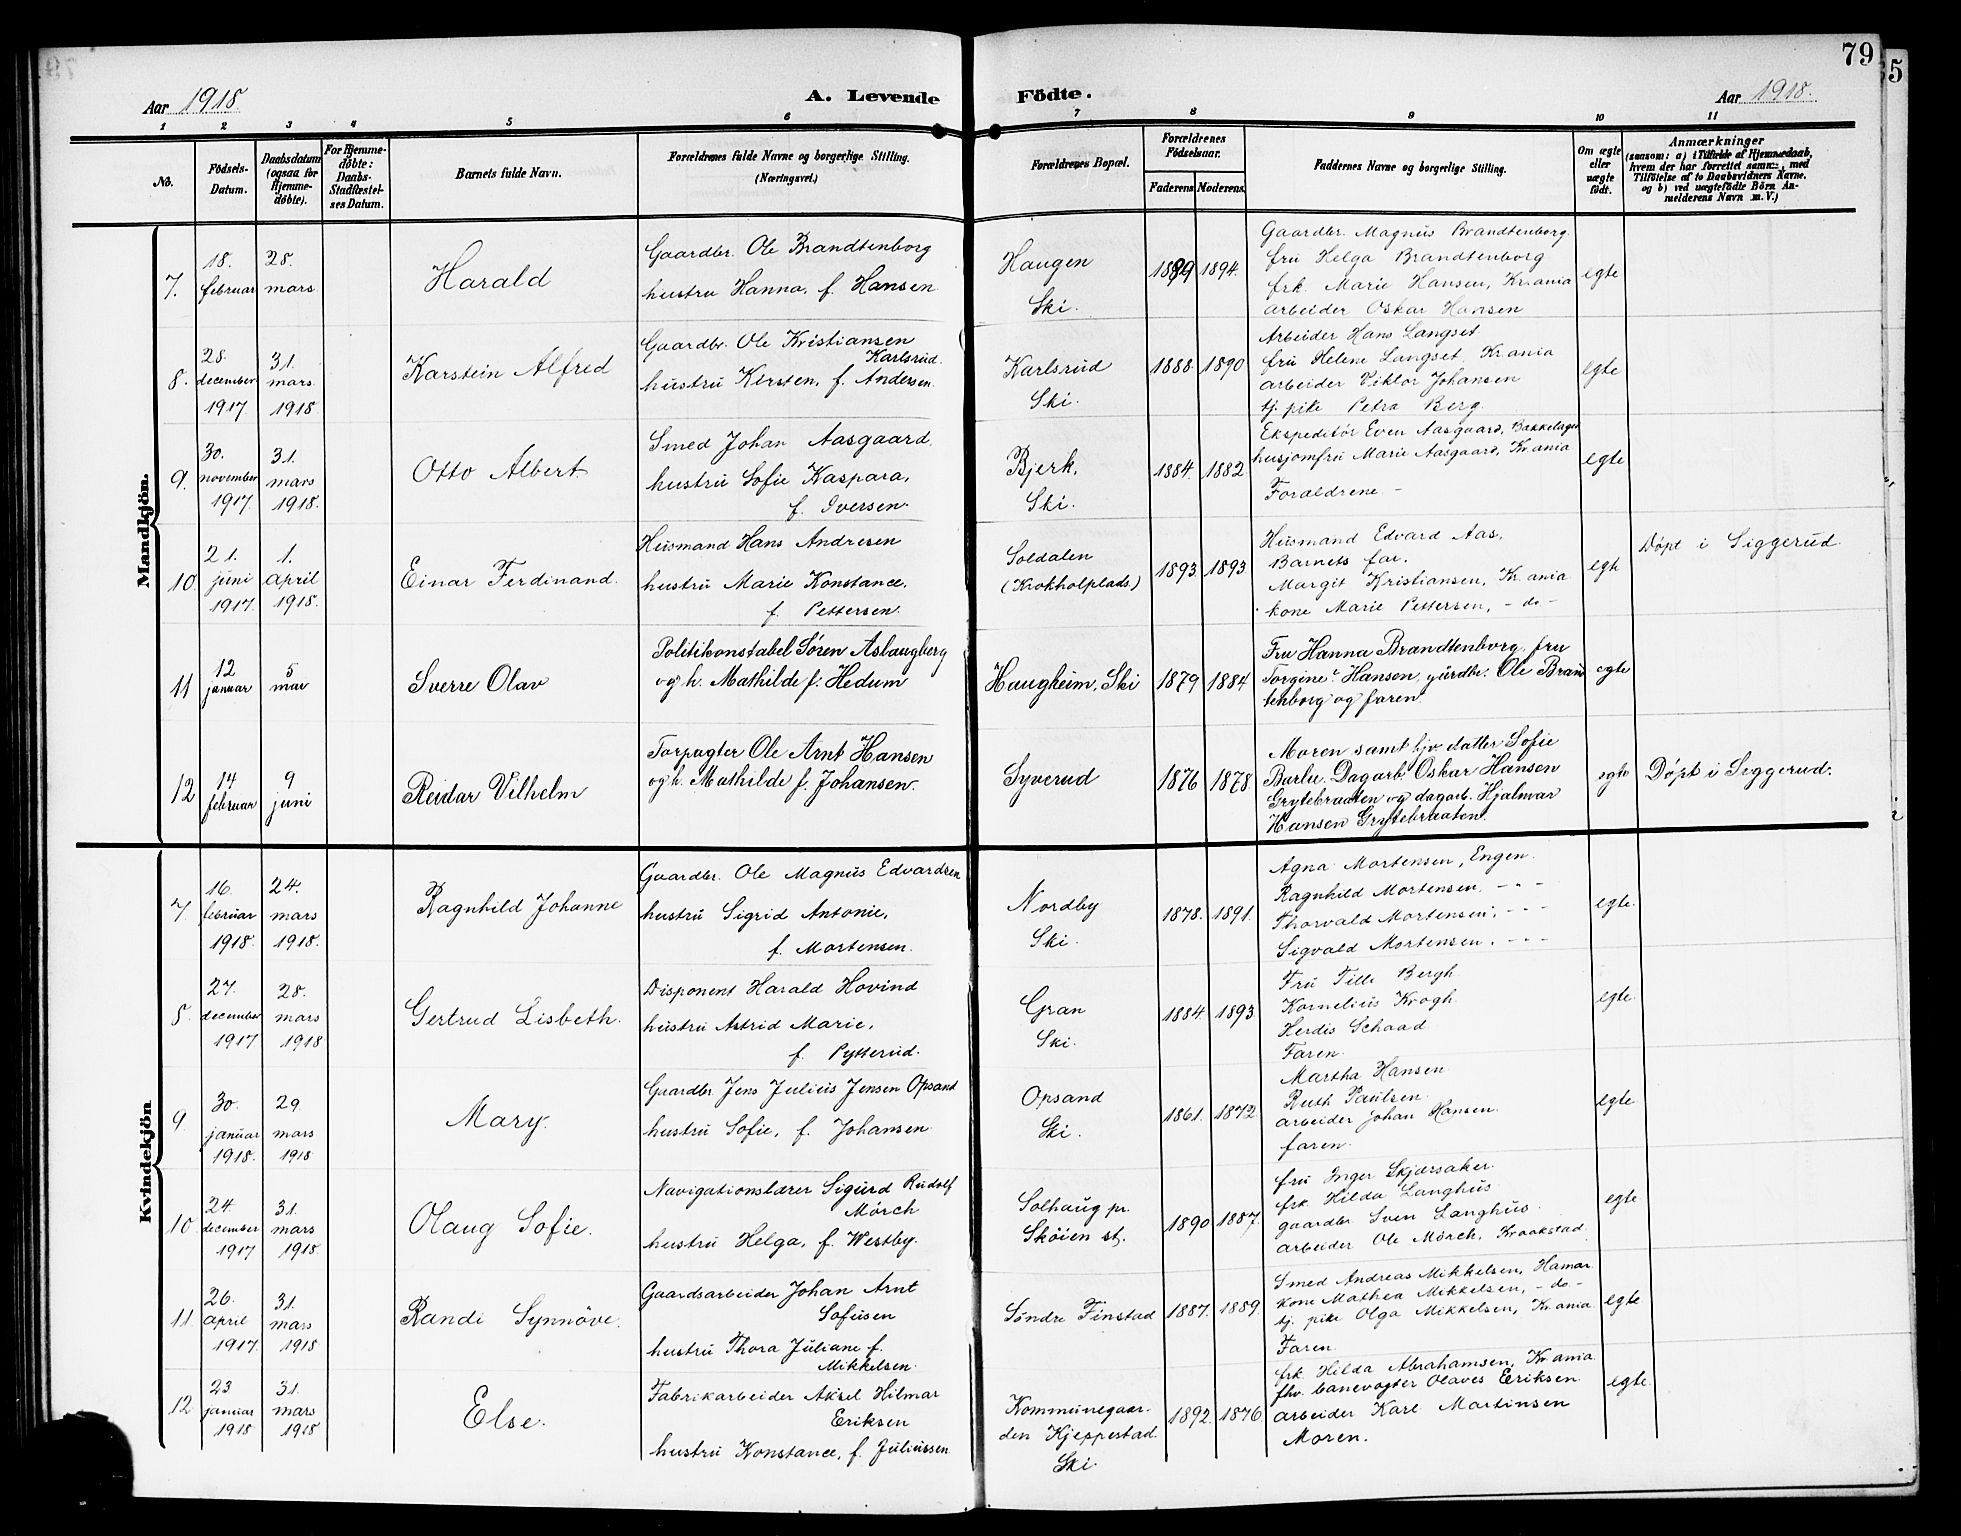 79
Aar 1918. A. Levende Födte. Aar 1918.
1 2 3 4 5 6 7 8 9 10 11
No.
Födsels-Datum.
Daabsdatum (ogsaa for Hjemme-döbte).
For Hjemme-döbte: Daabs-Stadfæstel-ses Datum.
Barnets fulde Navn.
Forældrenes fulde Navne og borgerlige Stilling. (Næringsvei.)
Forældrenes Bopæl.
Forældrenes Födselsaar.
Faderens Moderens.
Faddernes Navne og borgerlige Stilling.
Om ægte eller uægte födt.
Anmærkninger
(saasom: a) i Tilfælde af Hjemmedaab,
hvem der har forrettet samme, med
Tilföielse af to Daabsvidners Navne.
og b) ved uægtefödte Börn An-
melderens Navn m. V.)
Mandkjön.
7.
18. februar
28. mars
Harald
Gaardbr. Ole Brandtenborg
hustru Hanna, f. Hansen
Haugen
Ski.
1889 1894.
Gaardbr. Magnus Brandtenborg
fru Helga Brandtenborg
frk. Marie Hansen, Kr.ania
arbeider Oskar Hansen
egte
8.
28. december 1917
31. mars 1918
Karstein Alfred
Gaardbr. Ole Kristiansen
Karlsrud.
hustru Kirsten, f. Andersen
Karlsrud
Ski.
1888. 1890
Arbeider Hans Langset
fru Helene Langset, Kr.ania
arbeider Viktor Johansen
tj. pike Petra Berg.
egte
9.
30. november 1917
31. mars 1918.
Otto Albert
Smed Johan Aasgaard,
hustru Sofie Kaspara,
f. Iversen.
Bjerk,
Ski.
1884. 1882
Ekspeditör Even Aasgaard, Bækkelaget
husjomfru Marie Aasgaard, Kr.ania
Forældrene -
egte
10.
21. juni 1917.
1. april 1918.
Einar Ferdinand.
Husmand Hans Andresen
hustru Marie Konstance,
f. Pettersen.
Soldalen
(Krokholplads.)
1893. 1893
Husmand Edvard Aas,
Barnets far.
Margit Kristiansen, Kr.ania
kone Marie Pettersen, - do -
egte
Døpt i Siggerud.
11
12 januar
5 mai
Sverre Olav
Politikonstabel Søren Aslaugberg
og h. Mathilde f. Hedum
Haugheim, Ski
1879 1884
Fru Hanna Brandtenborg, fru
Torgine Hansen, gårdbr. Ole Brand
tenborg og faren.
egte
12
14 februar
9 juni
Reidar Vilhelm
Forpagter Ole Arnt Hansen
og h. Mathilde f. Johansen.
Syverud
1876 1878
Moren samt hjv. datter Sofie
Barlie. Dagarb. Oskar Hansen
Grytebraaten og dagarb. Hjalmar
Hansen Grytebraaten.
egte
Døpt i Siggerud.
Kvindekjön
7.
16. februar 1918.
24. mars 1918.
Ragnhild Johanne
Gaardbr. Ole Magnus Edvardsen
hustru Sigrid Antonie,
f. Mortensen.
Nordby
Ski.
1878. 1891.
Agna Mortensen, Engen.
Ragnhild Mortensen, - " -
Thorvald Mortensen, - " -
Sigvald Mortensen, - " -
egte.
8.
27. december 1917
28. mars 1918
Gertrud Lisbeth.
Disponent Harald Hovind
hustru Astrid Marie,
f. Pytterud.
Gran
Ski.
1884. 1893
Fru Tille Bergh
Kornelius Krogh
Herdis Schaad
Faren.
egte
9.
30. januar 1918.
29. mars 1918
Mary.
Gaardbr. Jens Julius Jensen Opsand
hustru Sofie, f. Johansen
Opsand
Ski.
1861. 1872.
Martha Hansen
Ruth Paulsen.
arbeider Johan Hansen.
faren.
egte
10.
24. december 1917
31. mars 1918
Olaug Sofie.
Navigationslærer Sigurd Rudolf
Mörch
hustru Helga, f. Westby.
Solhaug pr.
Sköien st.
1890 1887.
fru Inger Skjærsaker.
frk Hilda Langhus
gaardbr. Sven Langhus.
arbeider Ole Mörch, Kraakstad
egte
11.
26. april 1917.
31. mars 1918
Randi Synnöve.
Gaardsarbeider Johan Arnt
Sofusen
hustru Thora Juliane f.
Mikkelsen.
Söndre Finstad
1887. 1889.
Smed Andreas Mikkelsen, Hamar.
kone Mathea Mikkelsen, - do -
tj. pike Olga Mikkelsen, Kr.ania
Faren.
egte
12
23 januar 1918
31. mars 1918
Else.
Fabrikarbeider Aksel Hilmar
Eriksen
hustru Konstance, f. Juliussen
Kommunegaar-
den Kjeppestad
Ski.
1892. 1876
frk. Hilda Abrahamsen, Kr.ania.
fhv. banevogter Olaves Eriksen
arbeider Karl Martinsen
Moren.
egte.